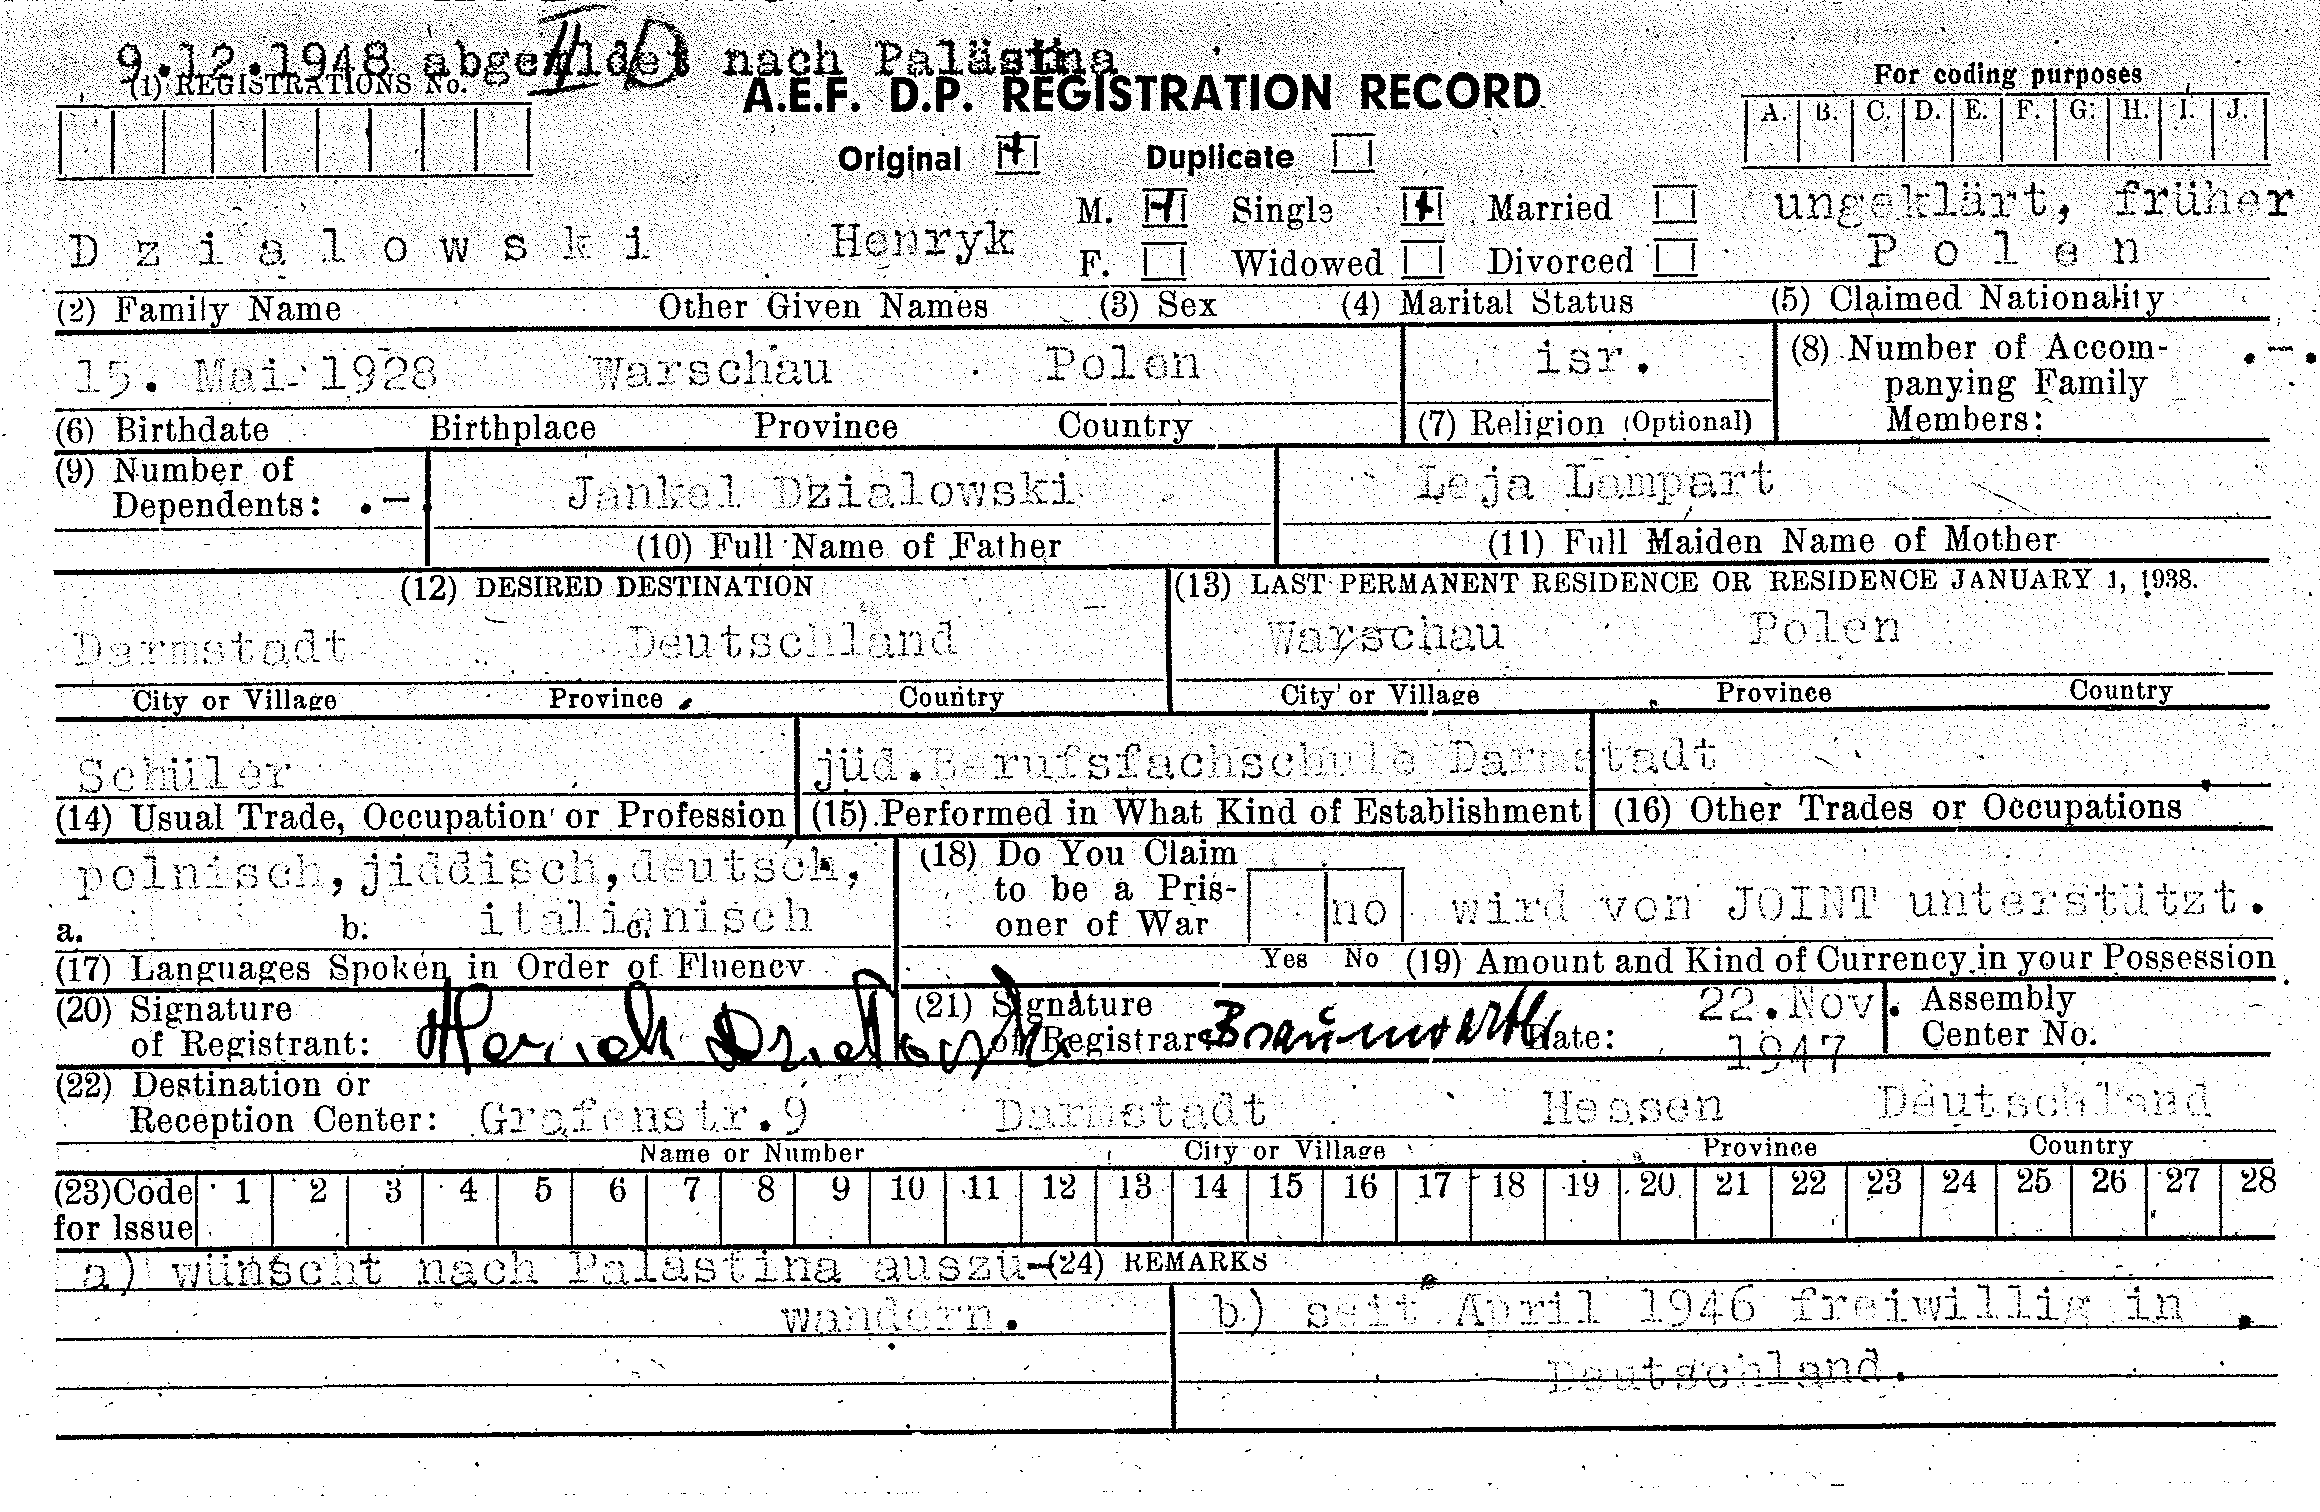 9.12.1948 abgemeldet nach Palästina
II D
(1) REGISTRATIONS No.
A.E.F. D.P. REGISTRATION RECORD
For coding purposes
A. B. C. D. E. F. G. H. I. J.
Original + Duplicate
M. Single + Married
ungeklärt, früher
D z i a l o w s k i Henryk
F. Widowed Divorced
P o l e n
(2) Family Name Other Given Names (3) Sex (4) Marital Status (5) Claimed Nationality
15. Mai 1928 Warschau Polen isr.
(8) Number of Accom-
panying Family
Members: .-.
(6) Birthdate Birthplace Province Country (7) Religion (Optional)
(9) Number of
Dependents: .-.
Jankel Dzialowski Leja Lampart
(10) Full Name of Father (11) Full Maiden Name of Mother
(12) DESIRED DESTINATION (13) LAST PERMANENT RESIDENCE OR RESIDENCE JANUARY 1, 1938.
Darmstadt Deutschland Warschau Polen
City or Village Province Country City or Village Province Country
Schüler jüd.Berufsfachschule Darmstadt
(14) Usual Trade, Occupation or Profession (15) Performed in What Kind of Establishment (16) Other Trades or Occupations
polnisch,jiddisch,deutsch,
a. b. italienisch c.
(18) Do You Claim
to be a Pris-
oner of War
no wird von JOINT unterstützt.
(17) Languages Spoken in Order of Fluency Yes No (19) Amount and Kind of Currency in your Possession
(20) Signature
of Registrant:
(21) Signature
of Registrar:
Date: 22.Nov.
1947
Assembly
Center No.
(22) Destination or
Reception Center: Grafenstr.9 Darmstadt Hessen Deutschland
Name or Number City or Village Province Country
(23) Code
for Issue
1 2 3 4 5 6 7 8 9 10 11 12 13 14 15 16 17 18 19 20 21 22 23 24 25 26 27 28
(24) REMARKS
a) wünscht nach Palästina auszu-
wandern.
b) seit April 1946 freiwillig in
Deutschland.